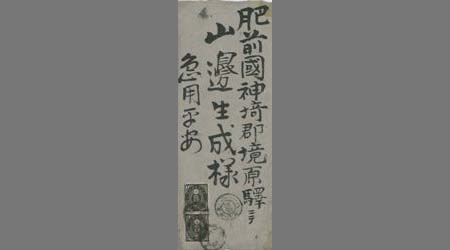 肥前國神埼郡境原驛ニテ
山邊生成様
急用平安